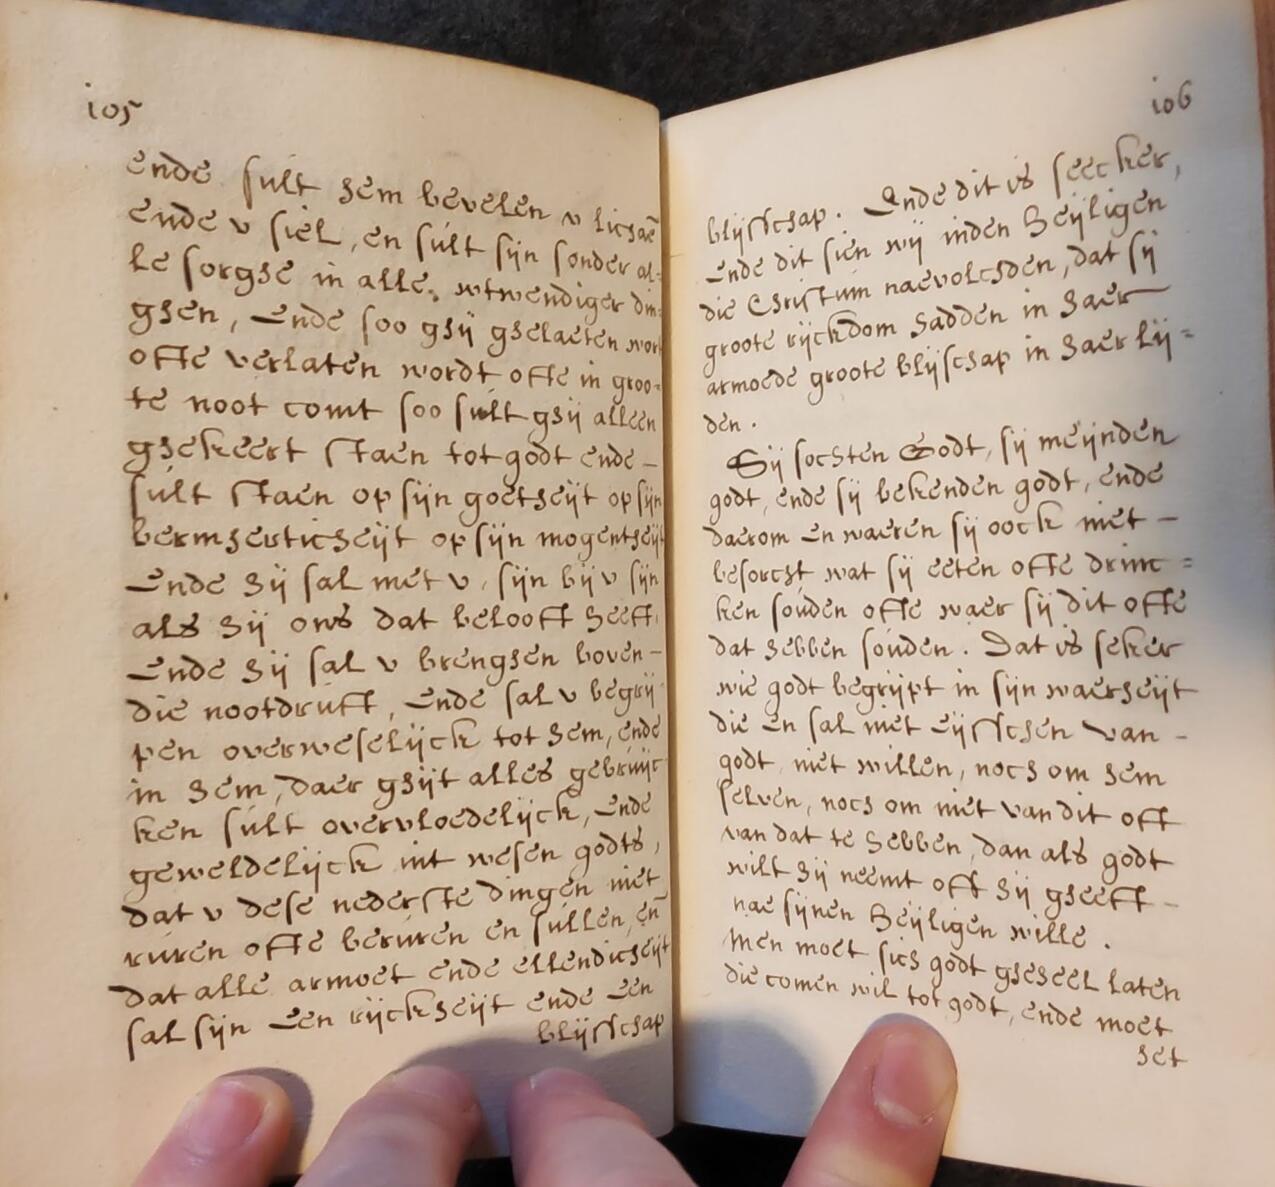 105
ende sult hem bevelen v lichaē
ende v siel, en sult sijn sonder al=
le sorghe in alle wtwendiger din=
ghen, Ende soo ghij ghelaeten wort
offe verlaten wordt offe in groo=
te noot comt soo sult ghij alleen
ghekeert staen tot godt ende –
sult staen op sijn goetheijt op sijn
bermherticheijt op sijn mogentheijt
Ende hij sal met v, sijn bij v sijn
als hij ons dat belooft heeft,
Ende hij sal v brenghen boven –
die nootdruft, Ende sal v begrij
pen overweselijck tot hem, ende
in hem, daer ghijt alles gebruijc
ken sult overvloedelijck, Ende
geweldelijck int wesen godts,
dat v dese nederste dingen niet
ruren offe beruren en sullen, eñ
dat alle armoet ende ellendicheijt
sal sijn Een rijckheijt ende Een
blijsschap
106
blijsschap. Ende dit is seecker,
Ende dit sien wij inden Heijligen
die Christum naevolchden, dat sij
groote rijckdom hadden in haer
armoede groote blijschap in haer lij=
den.
Sij sochten Godt, sij meijnden
godt, ende sij bekenden godt, ende
daerom En waeren sij oock niet –
besorcht wat sij eeten offe drinc=
ken souden offe waer sij dit offe
dat hebben souden. Dat is seker
wie godt begrijpt in sijn waerheijt
die En sal niet Eijsschen van –
godt niet willen, noch om hem
selven, noch om niet van dit oft
van dat te hebben, dan als godt
wilt hij neemt oft hij gheeft –
nae sijnen Heijligen wille.
Men moet sich godt gheheel laten
die comen wil tot godt, ende moet
het